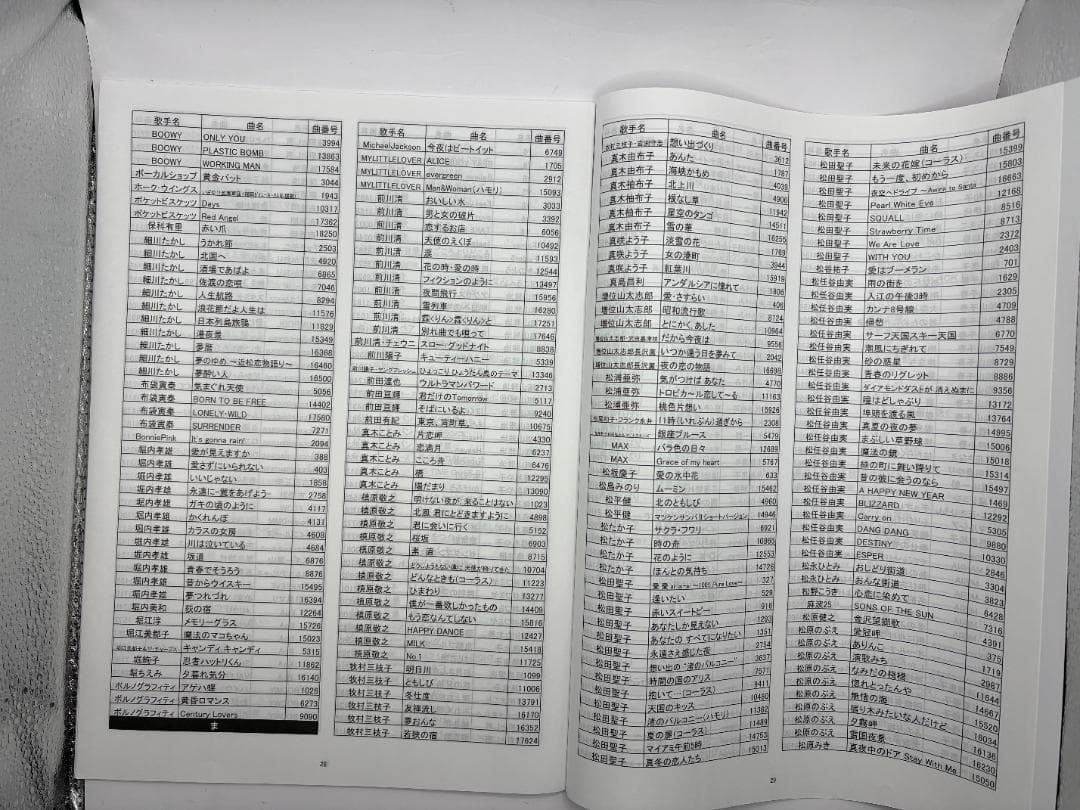 歌手名 曲名 曲番号
BOOWY ONLY YOU 3994
BOOWY PLASTIC BOMB 13863
BOOWY WORKING MAN 17584
ボーカルショップ 黄金バット 3044
ホーク・ウイングス 1943
ポケットビスケッツ Days 10317
ポケットビスケッツ Red Angel 17362
保科有里 赤い爪 18250
細川たかし うかれ節 2503
細川たかし 北国へ 4920
細川たかし 酒場であばよ 6865
細川たかし 佐渡の恋唄 7046
細川たかし 人生航路 8294
細川たかし 浪花節だよ人生は 11576
細川たかし 日本列島旅鴉 11829
細川たかし 港夜景 15349
細川たかし 夢暦 16368
細川たかし 夢のゆめ ~近松恋物語り~ 16460
細川たかし 夢酔い人 16500
布袋寅泰 気まぐれ天使 5056
布袋寅泰 BORN TO BE FREE 14402
布袋寅泰 LONELY-WILD 17560
布袋寅泰 SURRENDER 7271
BonniePink It's gonna rain! 2094
堀内孝雄 愛が見えますか 388
堀内孝雄 愛さずにいられない 403
堀内孝雄 いいじゃない 1858
堀内孝雄 永遠に~翼をあげよう~ 2758
堀内孝雄 ガキの頃のように 4117
堀内孝雄 かくれんぼ 4131
堀内孝雄 カラスの女房 4608
堀内孝雄 川は泣いている 4684
堀内孝雄 坂道 6876
堀内孝雄 青春でそうろう 8876
堀内孝雄 昔からウイスキー 15495
堀内孝雄 夢つれづれ 16394
堀内美和 荻の宿 12264
堀江淳 メモリーグラス 15726
堀江美都子 魔法のマコちゃん 15023
キャンディ キャンディ 5315
堀絢子 忍者ハットリくん 11862
堀ちえみ 夕暮れ気分 16140
ポルノグラフィティ アゲハ蝶 1028
ポルノグラフィティ 黄昏ロマンス 6273
ポルノグラフィティ Century Lovers 9090
ま
28
歌手名 曲名 曲番号
MichaelJackson 今夜はビートイット 6749
MYLITTLELOVER ALICE 1705
MYLITTLELOVER evergreen 2912
MYLITTLELOVER Man&Woman(ハモリ) 15093
前川清 おいしい水 3033
前川清 男と女の破片 3392
前川清 恋するお店 6056
前川清 天使のえくぼ 10492
前川清 涙 11593
前川清 花の時・愛の時 12544
前川清 フィクションのように 13497
前川清 夜間飛行 15956
前川清 雪列車 16280
前川清 霧<りん>霧<りん>と 17251
前川清 別れ曲でも唄って 17646
前川清・チェウニ スロー・グッドナイト 8838
前川陽子 キューティーハニー 5339
ひょっこりひょうたん島のテーマ 13346
前田達也 ウルトラマンパワード 2713
前田亘輝 君だけのTomorrow 5117
前田亘輝 そばにいるよ 9240
前田有紀 東京、宵町草。 10675
真木ことみ 片恋岬 4330
真木ことみ 恋満月 6237
真木ことみ こころ舟 6476
真木ことみ 橋 12295
真木ことみ 陽だまり 13090
槇原敬之 明けない夜が来ることはない 1023
槇原敬之 北風 君にとどきますように 4898
槇原敬之 君に会いに行く 5152
槇原敬之 桜坂 6903
槇原敬之 素直 8715
槇原敬之 どうしようもない僕に天使が降りてきた 10704
槇原敬之 どんなときも(コーラス) 11223
槇原敬之 ひまわり 13277
槇原敬之 僕が一番欲しかったもの 14409
槇原敬之 もう恋なんてしない 15816
槇原敬之 HAPPY DANCE 12427
槇原敬之 MILK 15418
槇原敬之 No.1 11725
牧村三枝子 明日川 1099
牧村三枝子 ともしび 11006
牧村三枝子 冬牡丹 13791
牧村三枝子 友禅流し 16170
牧村三枝子 夢おんな 16352
牧村三枝子 若狭の宿 17824
歌手名 曲名 曲番号
想い出づくり 3612
真木由布子 あんた 1787
真木由布子 海峡かもめ 4039
真木柚布子 北上川 4906
真木柚布子 根なし草 11942
真木柚布子 星空のタンゴ 14511
真木由布子 雪の華 16255
真咲よう子 淡雪の花 1769
真咲よう子 女の湊町 3944
真咲よう子 紅葉川 15919
真島昌利 アンダルシアに憧れて 1806
増位山太志郎 愛・さすらい 406
増位山太志郎 昭和流行歌 8724
増位山太志郎 とにかく、あした 10964
だから今夜は 9556
いつか違う日を夢みて 2042
夜の恋の物語 16696
松浦亜弥 気がつけば あなた 4770
松浦亜弥 トロピカ~ル恋して~る 11163
松浦亜弥 桃色片想い 15926
11時(いれぶん)過ぎから 2308
銀座ブルース 5479
MAX バラ色の日々 12689
MAX Grace of my heart 5767
松坂慶子 愛の水中花 633
松島みのり ムーミン 15462
松平健 北のともしび 4960
松平健 マツケンサンバII ショートバージョン 14946
松たか子 サクラ・フワリ 6921
松たか子 時の舟 10860
松たか子 花のように 12553
松たか子 ほんとの気持ち 14726
松田聖子 327
松田聖子 逢いたい 529
松田聖子 赤いスイートピー 916
松田聖子 あなたしか見えない 1292
松田聖子 あなたの すべてになりたい 1351
松田聖子 永遠さえ感じた夜 2754
松田聖子 想い出の"渚のバルコニー" 3637
松田聖子 時間の国のアリス 7571
松田聖子 抱いて…(コーラス) 9411
松田聖子 天国のキッス 10480
松田聖子 渚のバルコニー(ハモリ) 11382
松田聖子 夏の扉(コーラス) 11489
松田聖子 マイアミ午前5時 14753
松田聖子 真冬の恋人たち 15013
29
歌手名 曲名 曲番号
松田聖子 未来の花嫁(コーラス) 15399
松田聖子 もう一度、初めから 15803
松田聖子 夜空へドライブ ~Aspire to Santa 16663
松田聖子 Pearl White Eve 12168
松田聖子 SQUALL 8516
松田聖子 Strawberry Time 8713
松田聖子 We Are Love 2372
松田聖子 WITH YOU 2403
松谷祐子 愛はブーメラン 701
松任谷由実 雨の街を 1629
松任谷由実 入江の午後3時 2305
松任谷由実 カンナ8号線 4709
松任谷由実 倦怠 4788
松任谷由実 サーフ天国スキー天国 6770
松任谷由実 潮風にちぎれて 7549
松任谷由実 砂の惑星 8729
松任谷由実 青春のリグレット 8886
松任谷由実 ダイアモンドダストが消えぬまに 9356
松任谷由実 瞳はどしゃぶり 13172
松任谷由実 埠頭を渡る風 13764
松任谷由実 真夏の夜の夢 14995
松任谷由実 まぶしい草野球 15006
松任谷由実 魔法の鏡 15018
松任谷由実 緑の町に舞い降りて 15314
松任谷由実 昔の彼に会うのなら 15497
松任谷由実 A HAPPY NEW YEAR 1469
松任谷由実 BLIZZARD 12292
松任谷由実 Carry on 5305
松任谷由実 DANG DANG 9880
松任谷由実 DESTINY 10330
松任谷由実 ESPER 10330
松永ひとみ おしどり街道 2846
松永ひとみ おんな街道 3304
松野こうき 心恋に染めて 3823
麻波25 SONS OF THE SUN 6428
松原健之 金沢望郷歌 7316
松原のぶえ 愛冠岬 4391
松原のぶえ ありんこ 375
松原のぶえ 演歌みち 1719
松原のぶえ なみだの桟橋 2987
松原のぶえ 惚れとったんや 11644
松原のぶえ 無情の海 14667
松原のぶえ 蛍り木みたいな人だけど 15520
松原のぶえ 夕霧岬 16034
松原のぶえ 雪国夜景 16136
松原みき 真夜中のドア Stay With Me 15050